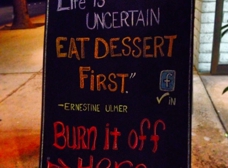 "Life is
UNCERTAIN
EAT DESSERT
FIRST."
—ERNESTINE ULMER
f
✓IN
BURN it off